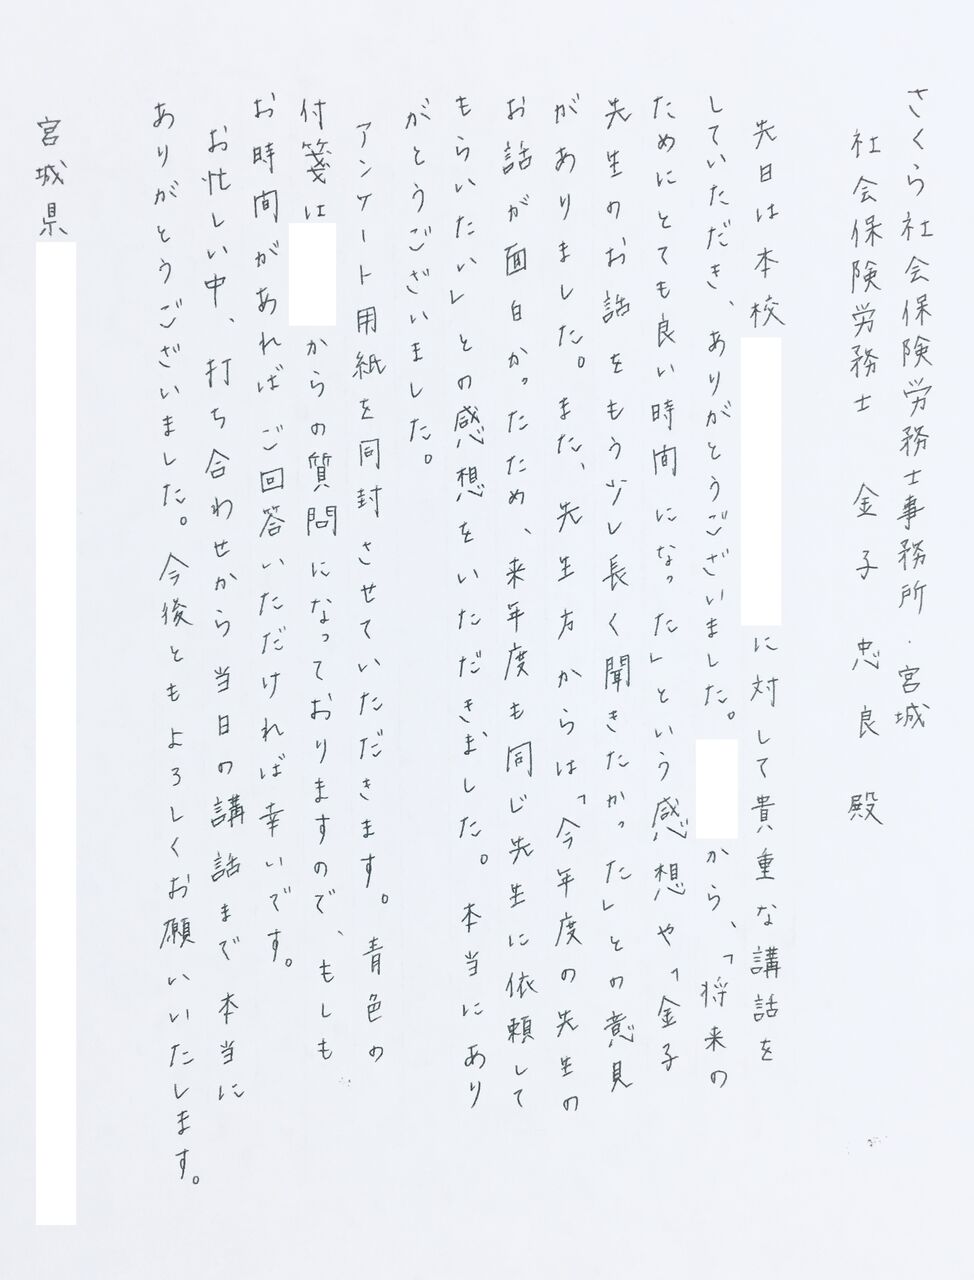 さくら社会保険労務士事務所・宮城
社会保険労務士 金子 忠良 殿
先日は本校 に対して貴重な講話を
していただき、ありがとうございました。 から、「将来の
ためにとても良い時間になった」という感想や「金子
先生のお話をもう少し長く聞きたかった」との意見
がありました。また、先生方からは「今年度の先生の
お話が面白かったため、来年度も同じ先生に依頼して
もらいたい」との感想をいただきました。本当にあり
がとうございました。
アンケート用紙を同封させていただきます。青色の
付箋は からの質問になっておりますので、もしも
お時間があればご回答いただければ幸いです。
お忙しい中、打ち合わせから当日の講話まで本当に
ありがとうございました。今後ともよろしくお願いいたします。
宮城県